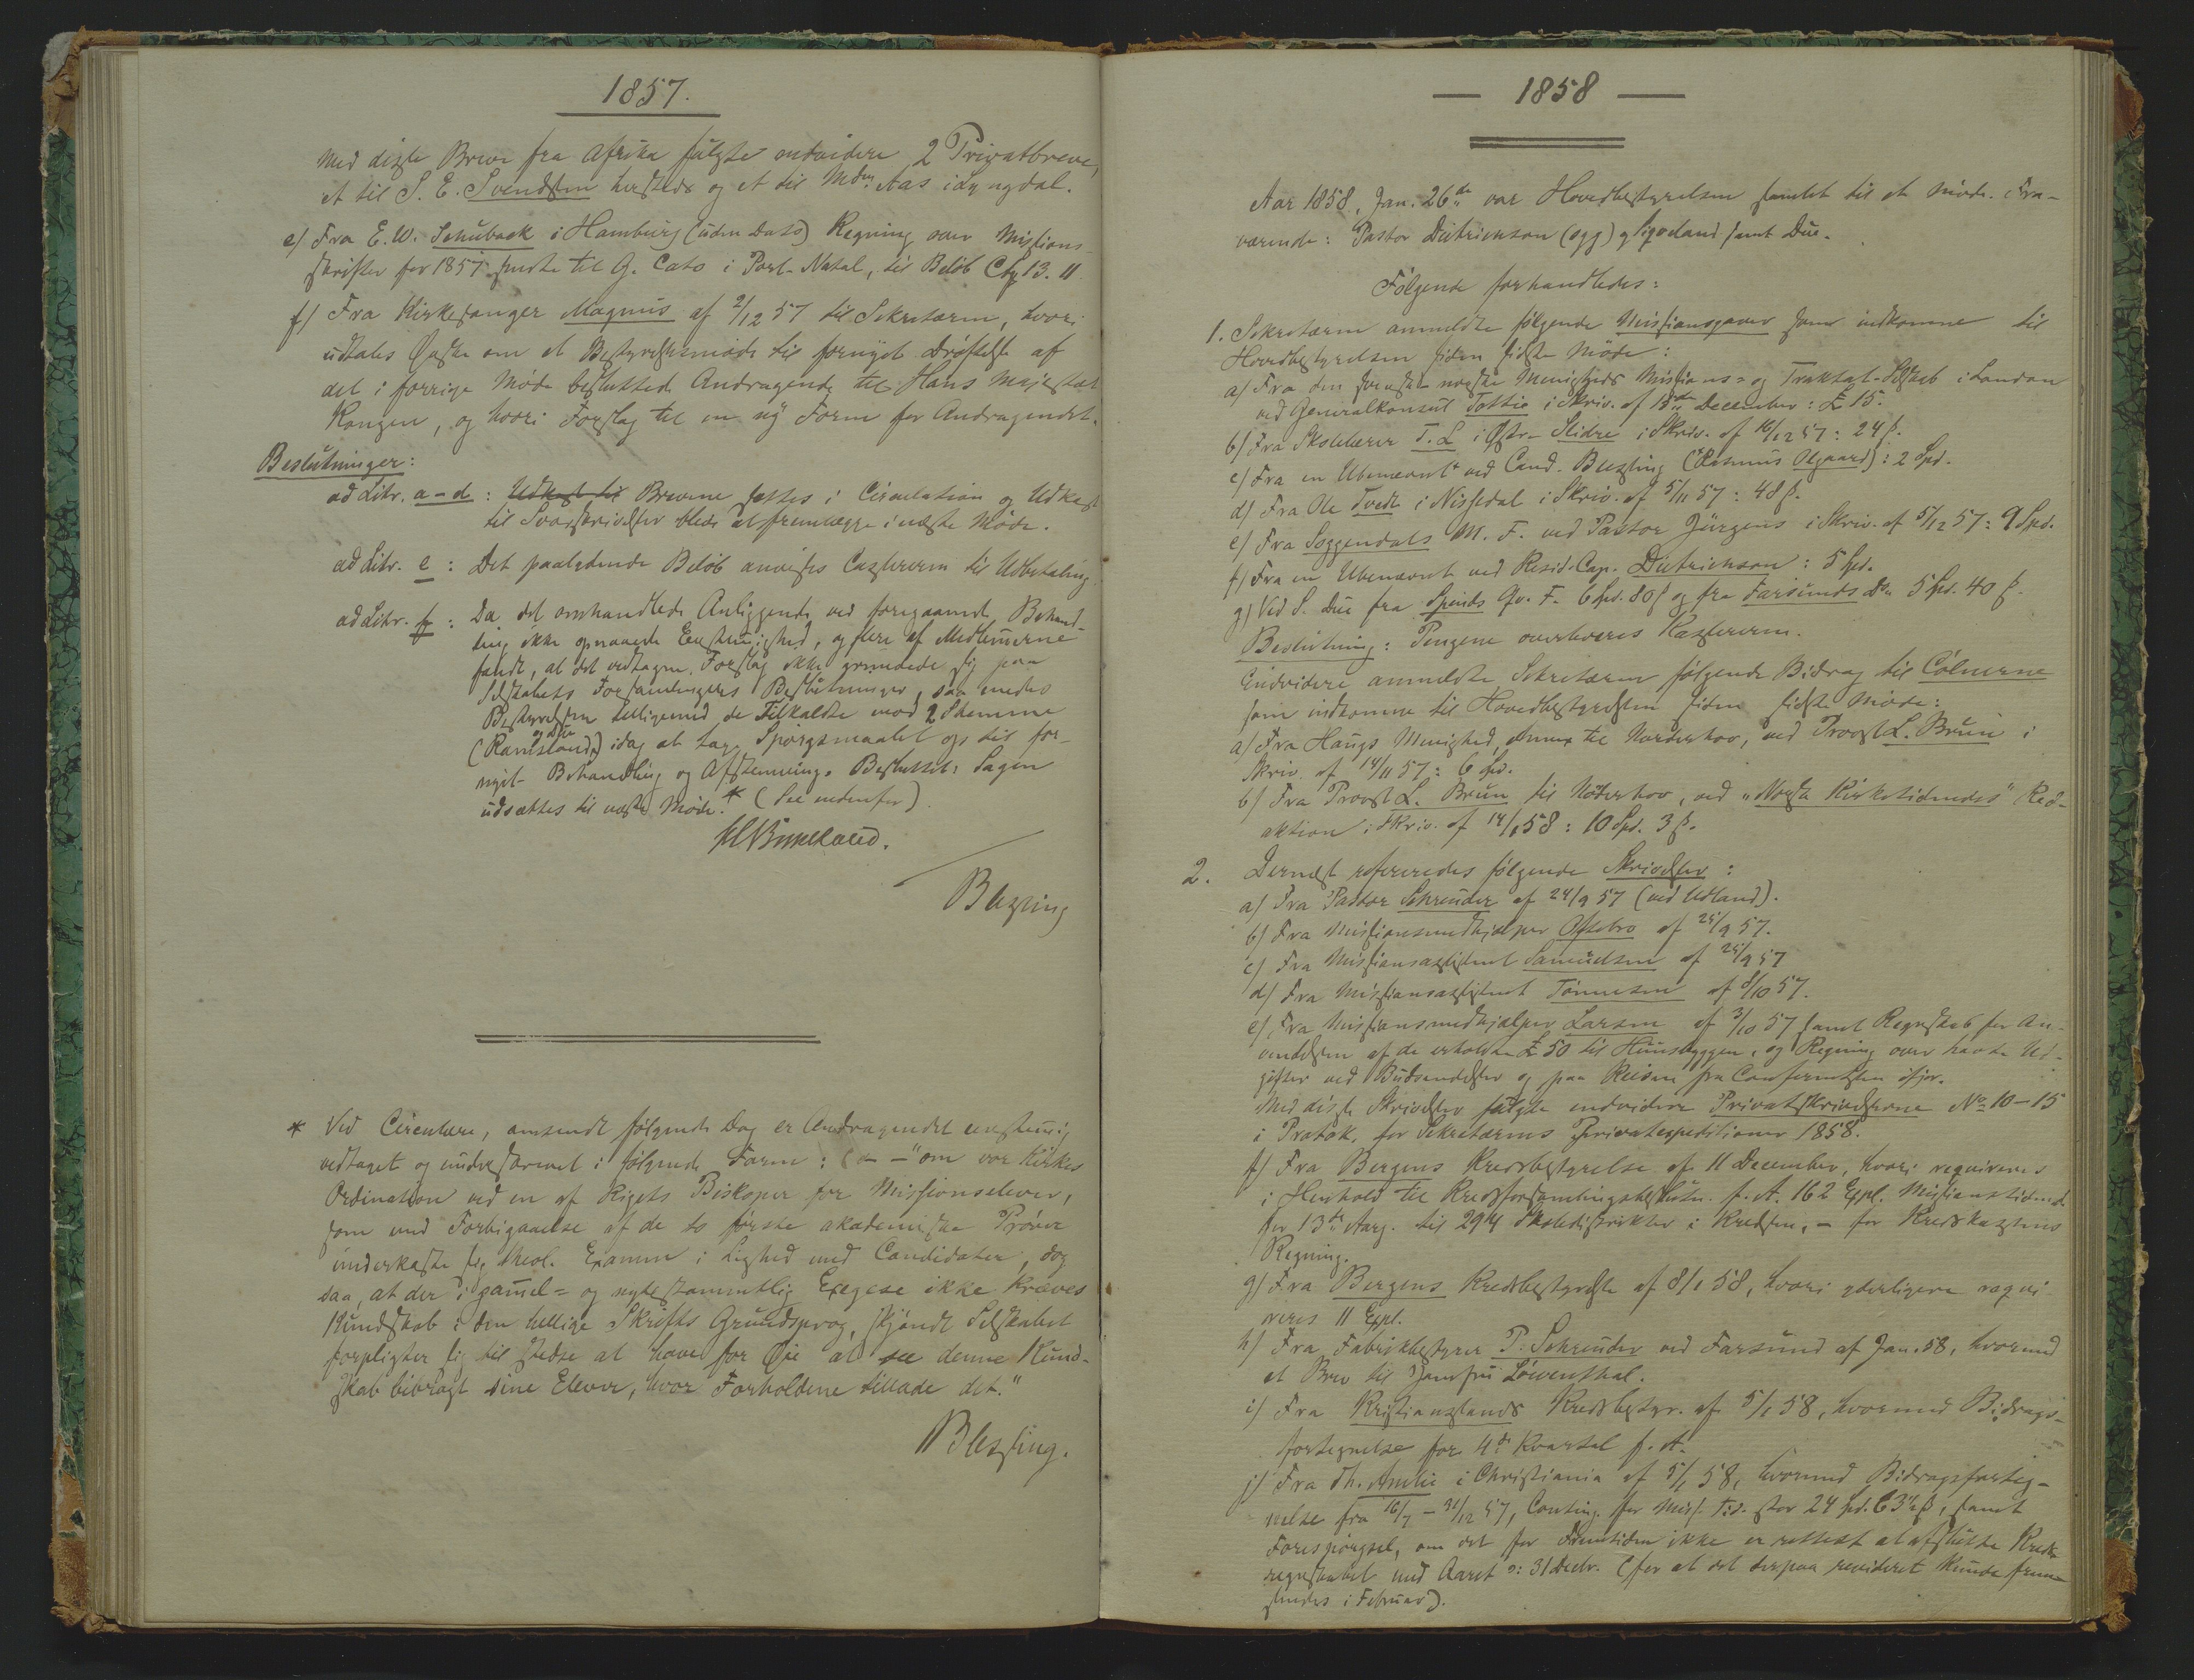 1857.
Med disse Breve fra Afrika fulgte endvidere 2 Privatbreve,
et til S. E. Svendsen hersteds og et til Mdm Aas i Lyngdal.
e) Fra E. W. Schuback i Hamburg (uden Dato) Regning over Missions
skrifter for 1857 sendte til G. Cato i Port-Natal, til Beløb 13. 11
f) Fra Kirkesanger Magnus af 2/12 57 til Sekretæren, hvori
udtales Ønske om et Bestyrelsesmøde til fornyet Drøftelse af
det i forrige Møde besluttede Andragende til Hans Majestæt
Kongen, og hvori Forslag til en ny Form for Andragendet.
Beslutninger:
ad Litr. a-d: Udkast til Brevene sættes i Circulation og Udkast
til Svarskrivelser blive at fremlægge i næste Møde.
ad Litr. e: Det paalydende Beløb anvises Cassereren til Udbetaling.
ad Litr. f: Da det omhandlede Anliggende ved foregaaende Behand-
ling ikke opnaaede Eenstemmighed, og flere af Medlemmerne
fandt, at det vedtagne Forslag ikke grundede sig paa
Selskabets Forsamlingers Beslutninger, saa enedes
Bestyrelsen tilligemed de Tilkaldte mod 2 Stemmer
(Ramsland og Due) idag at tage Spørgsmaalet op til for-
nyet Behandling og Afstemning. Besluttet: Sagen
udsættes til næste Møde. * (See nedenfor).
Blessing
* Ved Circulære, omsendt følgende Dag er Andragendet eenstemmig
vedtaget og underskrevet i følgende Form: ( — — "om vor Kirkes
Ordination ved en af Rigets Biskoper for Missionselever,
som med Forbigaaelse af de to første akademiske Prøver
underkaste sig theol. Examen i Lighed med Candidater, dog
saa, at der i gammel- og nytestamentlig Exegese ikke kræves
Kundskab i den hellige Skrifts Grundsprog, skjøndt Selskabet
forpligter sig til stedse at have for Øie at see denne Kund-
skab bibragt sine Elever, hvor Forholdene tillade det."
Blessing.
— 1858 —
Aar 1858, Jan. 26de var Hovedbestyrelsen samlet til et Møde. Fra-
værende: Pastor Dietrichson (syg) og Sigveland samt Due.
Følgende forhandledes:
1. Sekretæren anmeldte følgende Missionsgaver som indkomne til
Hovedbestyrelsen siden sidste Møde:
a) Fra den svensk-norske Menigheds Missions- og Traktat-Selskab i London
ved Generalkonsul Tottie i Skriv. af 18de December: £ 15.
b) Fra Skolelærer T. L i Østr-Slidre i Skriv. af 16/12 57: 24 ß.
c) Fra en Ubenævnt ved Cand. Blessing (Rasmus Olgaard): 2 Spd.
d) Fra Ole Tvedt i Nissedal i Skriv. af 5/11 57: 48 ß.
e) Fra Soggendals M. F. ved Pastor Jürgens i Skriv. af 5/12 57: 9 Spd.
f) Fra en Ubenævnt ved Resid. Cap. Dietrichson: 5 Spd.
g) Ved S. Due fra Spinds Qv. F. 6 Spd. 80 ß og fra Farsunds Do 5 Spd. 40 ß.
Beslutning: Pengene overleveres Kassereren.
Endvidere anmeldte Sekretæren følgende Bidrag til Cölnerne
som indkomne til Hovedbestyrelsen siden sidste Møde:
a) Fra Haugs Menighed, Annex til Norderhov, ved Provst L. Bruun i
Skriv. af 14/11 57: 6 Spd.
b) Fra Provst L. Bruun til Norderhov, ved "Norsk Kirketidendes" Red-
aktion i Skriv. af 14/1 58: 10 Spd. 3 ß.
2. Dernæst refereredes følgende Skrivelser:
a) Fra Pastor Schreuder af 24/9 57 (ved Udland).
b) Fra Missionsmedhjælper Oftebro af 25/9 57.
c) Fra Missionsassistent Samuelsen af 25/9 57
d) Fra Missionsassistent Tønnesen af 8/10 57.
e) Fra Missionsmedhjælper Larsen af 3/10 57 samt Regnskab for An-
vendelsen af de erholdte £ 50 til Huusbyggen, og Regning over havte Ud-
gifter ved Budsendelser og paa Reisen fra Conferentsen ifjor.
Med disse Skrivelser fulgte endvidere Privatskrivelserne No 10-15
i Protok. for Sekretærens Privatexpeditioner 1858.
f) Fra Bergens Kredsbestyrelse af 11 December, hvori reqvireres
i Henhold til Kredsforsamlingsbeslutn. f. A. 162 Expl. Missionstidende
for 13de Aarg. til 294 Skoledistrikter i Kredsen, – for Kredskassens
Regning.
g) Fra Bergens Kredsbestyrelse af 8/1 58, hvori yderligere reqvi-
reres 11 Expl.
h) Fra Fabrikbestyrer P. Schreuder ved Farsund af Jan. 58, hvormed
et Brev til Jomfru Löwenthal.
i) Fra Kristianssands Kredsbestyr. af 5/1 58, hvormed Bidrags-
fortegnelse for 4de Kvartal f. A.
j) Fra Th. Amlie i Christiania af 5/1 58, hvormed Bidragsforteg-
nelse fra 16/7 - 31/12 57, Conting. for Miss. Tid. stor 24 Spd. 63½ ß, samt
Forespørgsel, om det for Fremtiden ikke er rettest at afslutte Kreds-
regnskabet med Aaret ɔ: 31 Decbr. (for at det derpaa revideret kunde frem-
sendes i Februar).